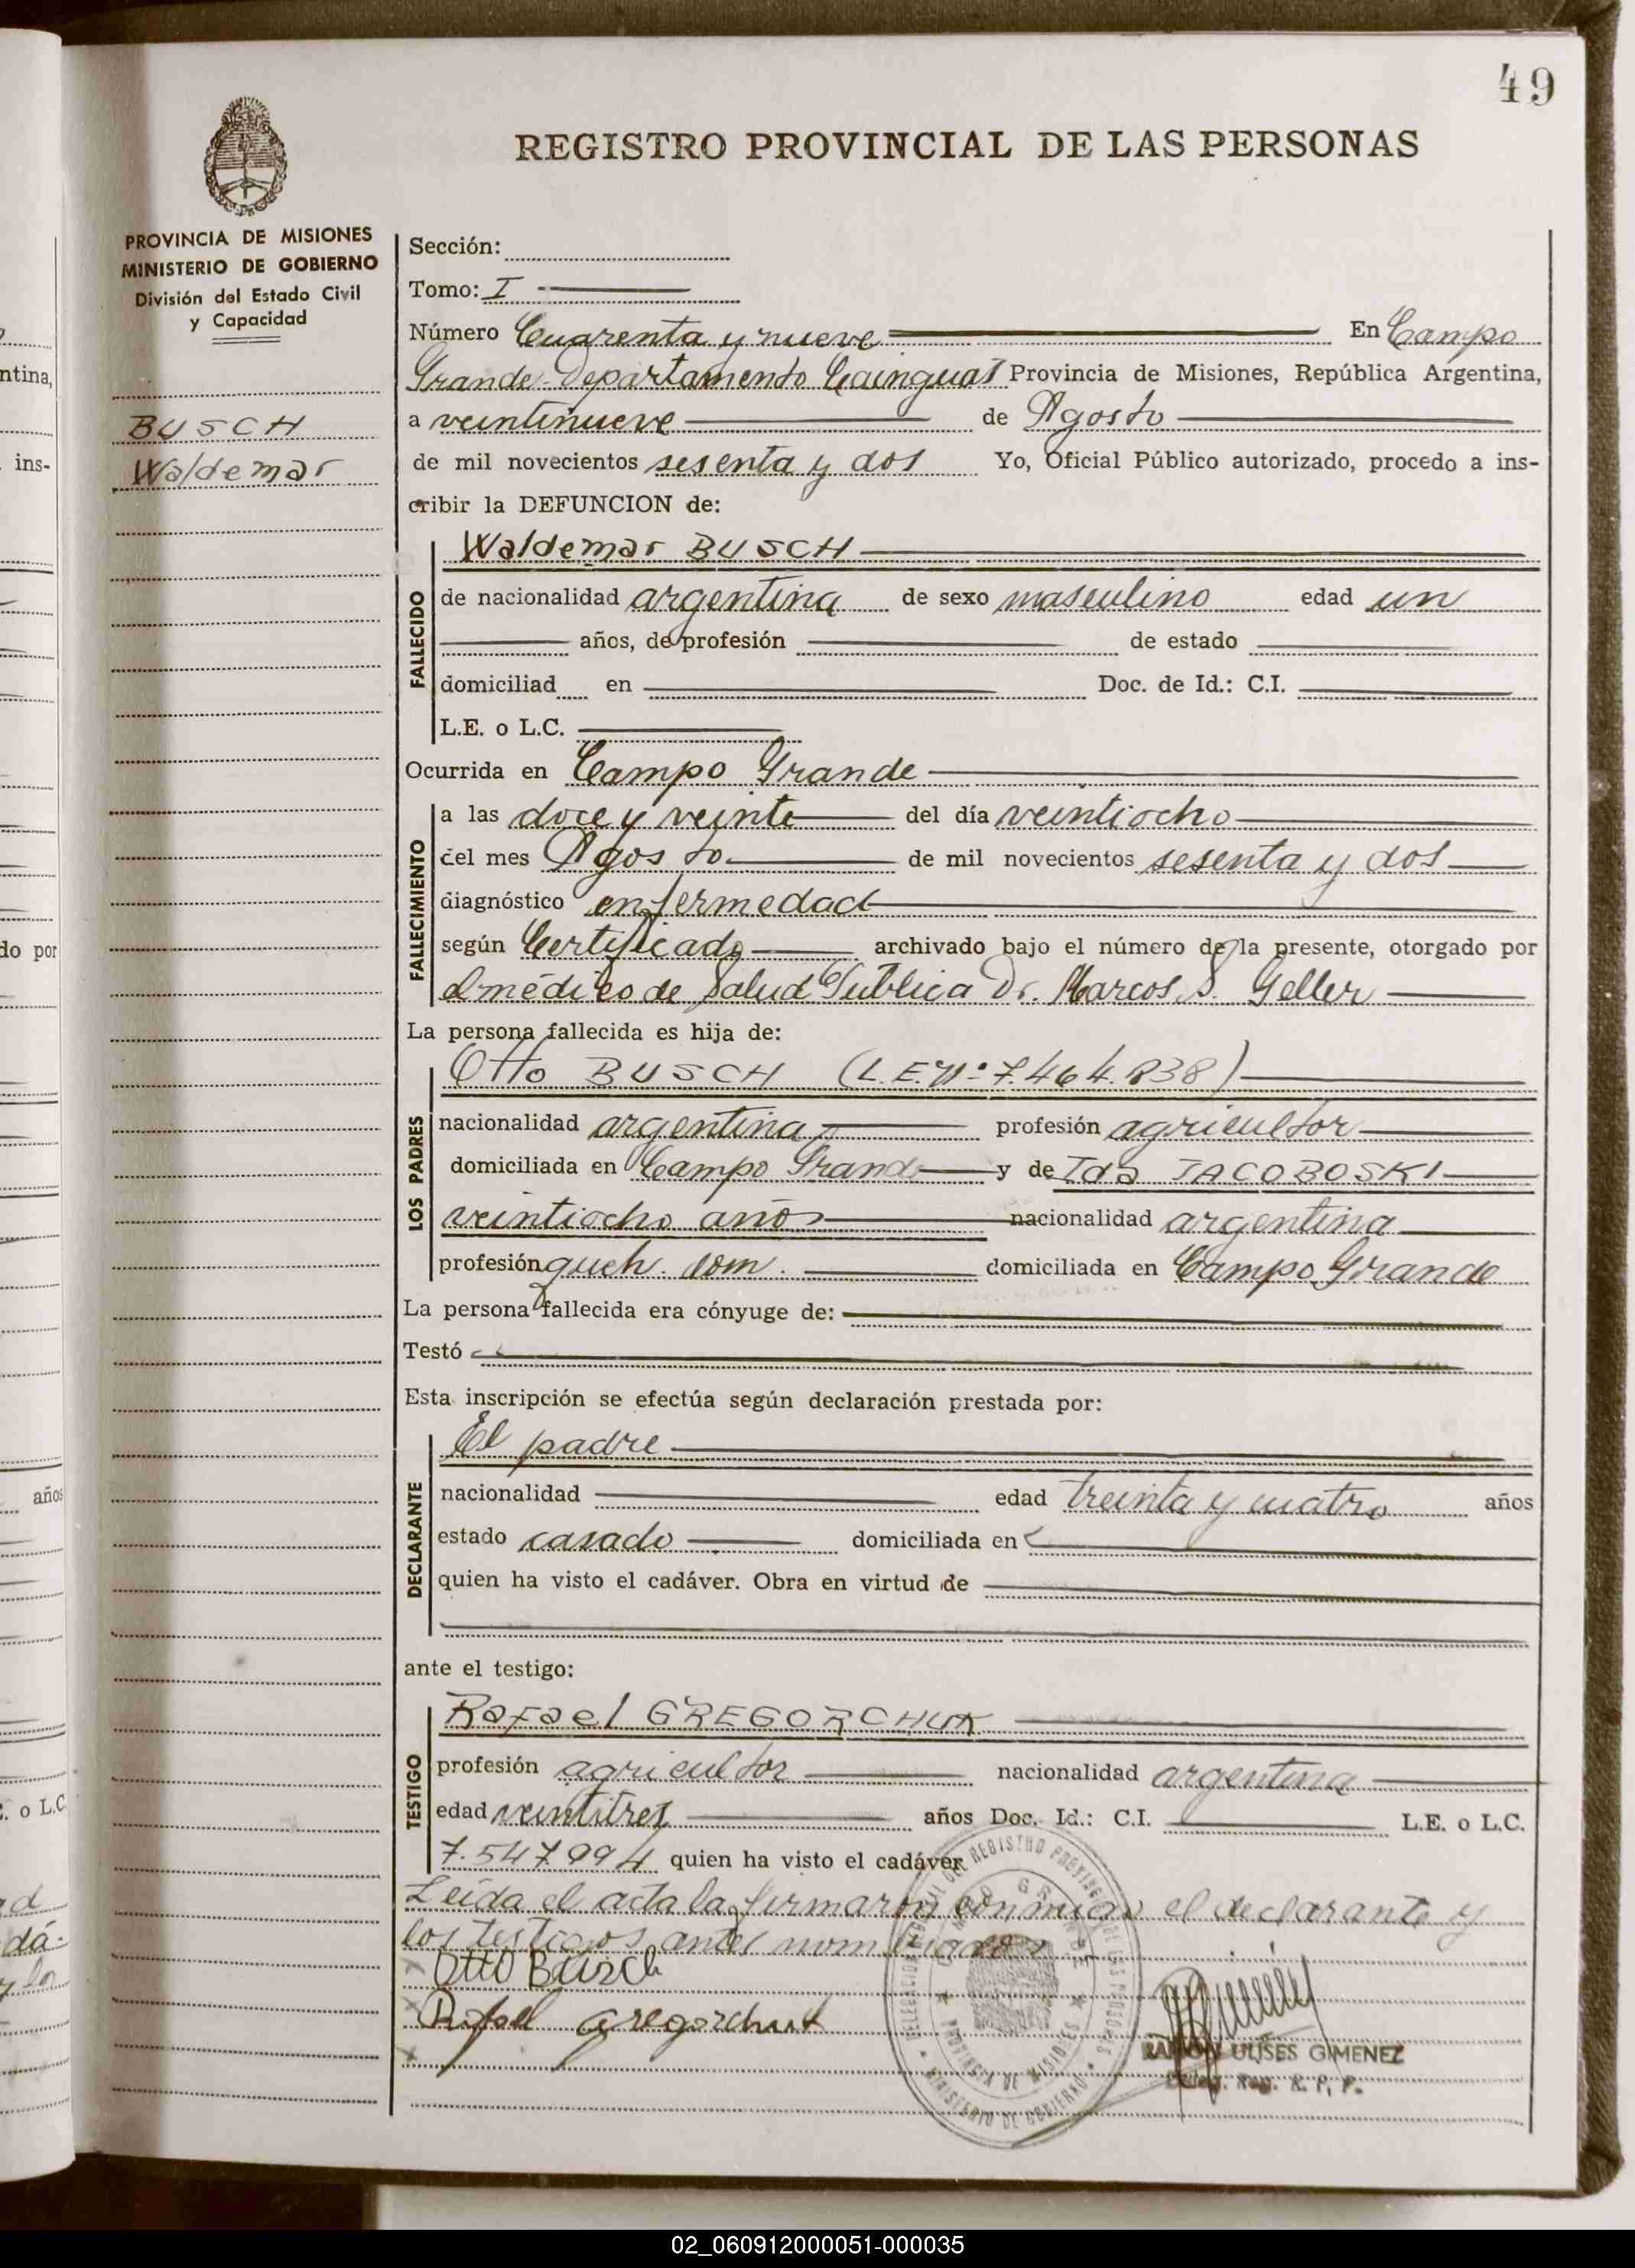 49
REGISTRO PROVINCIAL DE LAS PERSONAS
PROVINCIA DE MISIONES
MINISTERIO DE GOBIERNO
División del Estado Civil
y Capacidad
BUSCH
Waldemar
Sección:
Tomo: I
Número Cuarenta y nueve En Campo
Grande - Departamento Cainguás Provincia de Misiones, República Argentina,
a veintinueve de Agosto
de mil novecientos sesenta y dos Yo, Oficial Público autorizado, procedo a ins-
cribir la DEFUNCION de:
Waldemar BUSCH
FALLECIDO
de nacionalidad argentina de sexo masculino edad un
años, de profesión de estado
domiciliad en Doc. de Id.: C.I.
L.E. o L.C.
Ocurrida en Campo Grande
FALLECIMIENTO
a las doce y veinte del día veintiocho
del mes Agosto de mil novecientos sesenta y dos
diagnóstico enfermedad
según Certificado archivado bajo el número de la presente, otorgado por
el médico de Salud Pública Dr. Marcos S. Geller
La persona fallecida es hija de:
LOS PADRES
Otto BUSCH (L.E.Nº 7.464.838)
nacionalidad argentina profesión agricultor
domiciliada en Campo Grande y de Ida JACOBOSKI
veintiocho años nacionalidad argentina
profesión queh. dom. domiciliada en Campo Grande
La persona fallecida era cónyuge de:
Testó
Esta inscripción se efectúa según declaración prestada por:
DECLARANTE
El padre
nacionalidad edad treinta y cuatro años
estado casado domiciliada en
quien ha visto el cadáver. Obra en virtud de
ante el testigo:
TESTIGO
Rafael GREGORCHUK
profesión agricultor nacionalidad argentina
edad veintitres años Doc. Id.: C.I. L.E. o L.C.
7.547994 quien ha visto el cadáver
Leída el acta la firmaron conmigo el declarante y
los testigos antes nombrados
Otto Busch
Rafael Gregorchuk
RAMON ULISES GIMENEZ
PROVINCIA DE MISIONES
MINISTERIO DE GOBIERNO
ntina,
ins-
do por
años
o L.C.
02_060912000051-000035